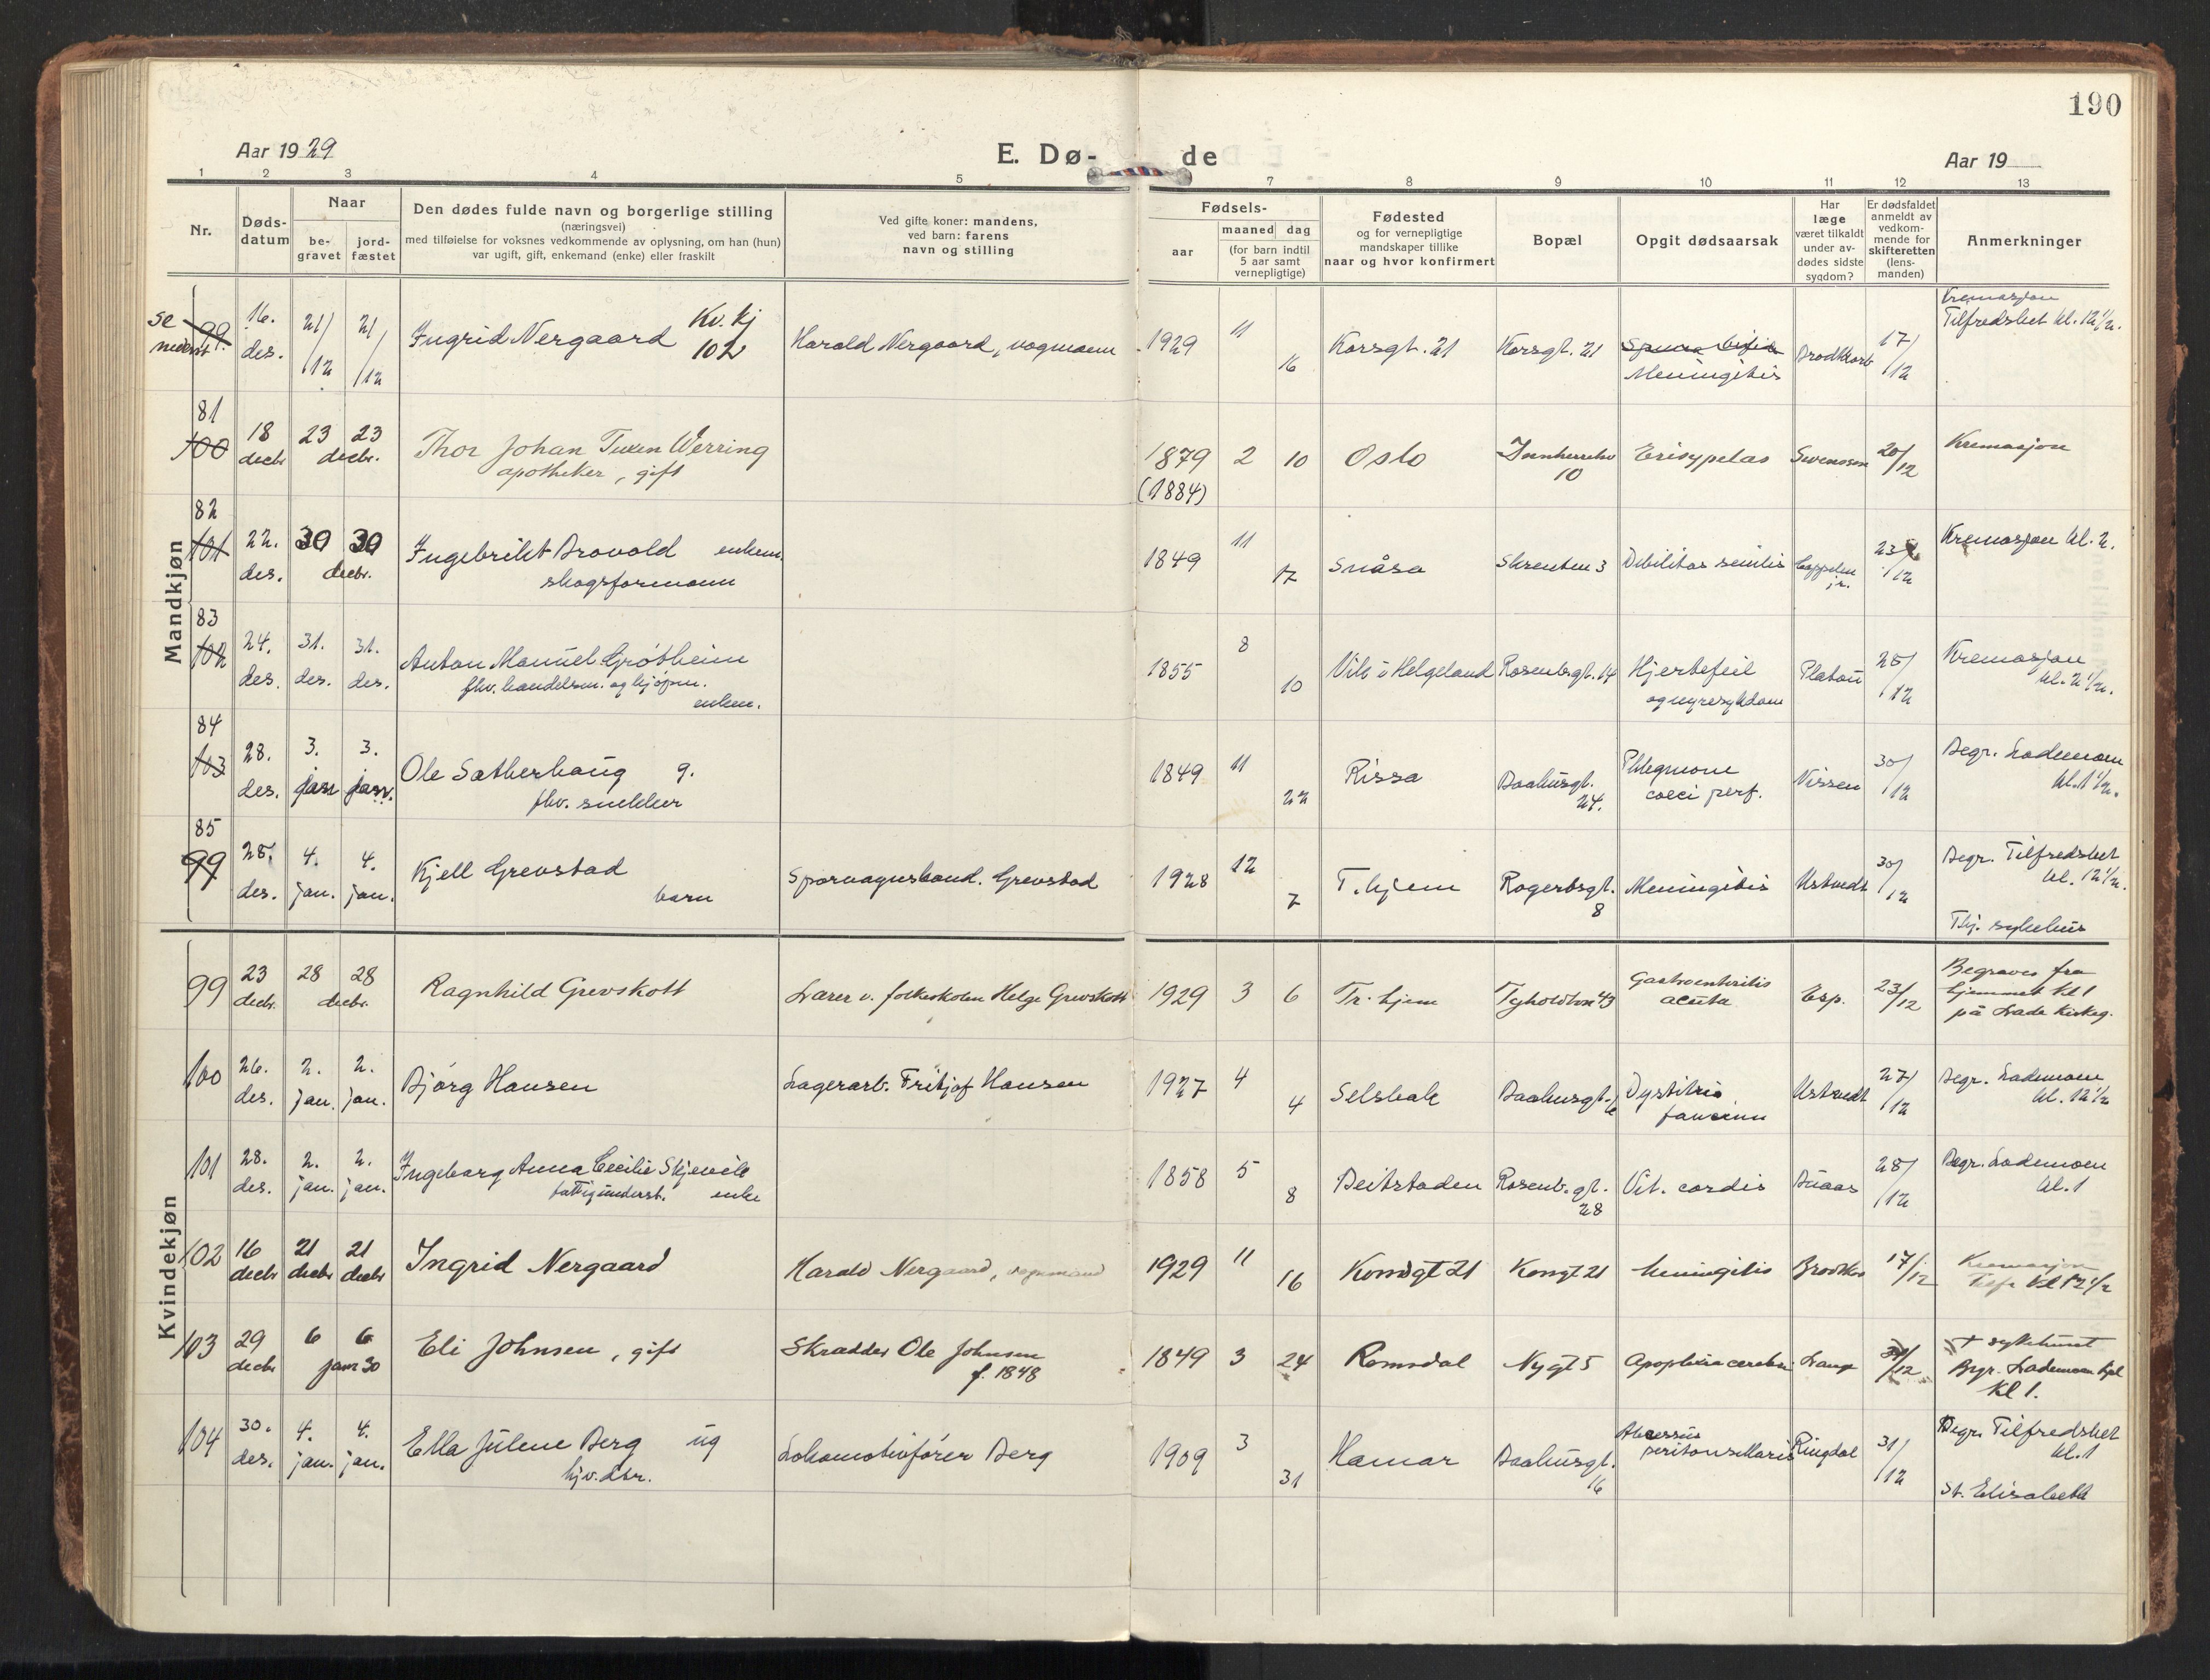 190
Aar 1929
E. Dø-
de
Aar 19
1 2 3 4 5 7 8 9 10 11 12 13
Nr.
Døds-
datum
Naar
be-
gravet
jord-
fæstet
Den dødes fulde navn og borgerlige stilling
(næringsvei)
med tilføielse for voksnes vedkommende av oplysning, om han (hun)
var ugift, gift, enkemand (enke) eller fraskilt
Ved gifte koner: mandens,
ved barn: farens
navn og stilling
Fødsels-
aar
maaned dag
(for barn indtil
5 aar samt
vernepligtige)
Fødested
og for vernepligtige
mandskaper tillike
naar og hvor konfirmert
Bopæl
Opgit dødsaarsak
Har
læge
været tilkaldt
under av-
dødes sidste
sygdom?
Er dødsfaldet
anmeldt av
vedkom-
mende for
skifteretten
(lens-
manden)
Anmerkninger
Mandkjøn
se nederst 99. 16. des. 21/12 21/12 Ingrid Nergaard Kv. kj 102 Harald Nergaard, vognmann 1929 11 16 Korsgt. 21 Korsgt. 21 Spina bifida Meningitis 17/12 Kremasjon Tilfredshet kl. 12½.
81 100 18 decbr 23 23 decbr. Thor Johan Tuxen Werring
apotheker, gift 1879 (1884) 2 10 Oslo Innherredsv 10 Erisypelas Swensson 20/12 Kremasjon
82 101 22. des. 30 30 decbr. Ingebrikt Brovold enkem.
skogsformann 1849 11 17 Snåsa Skrenten 3 Debilitas senilis Coppelen jr. 23/12 Kremasjon kl. 2.
83 102 24. des. 31. des. 31. des. Anton Manuel Grøtheim
fhv. handelsm. og kjøpm.
enkem. 1855 8 10 Vik i Helgeland Rosenbgt. 14 Hjertefeil
og nyresykdom Platou 28/12 Kremasjon kl. 2½.
84 103 28. des. 3. jan 3. jan. Ole Sætherhaug g.
fhv. snekker 1849 11 22 Rissa Baahusgt. 24. Phlegmone
coeci perf. Nissen 30/12 Begr. Lademoen kl. 1½.
85 99 28. des. 4. jan. 4. jan. Kjell Grevstad
barn Sporvagnskond. Grevstad 1928 12 7 T.hjem Rogertsgt. 8 Meningitis Ustvedt 30/12 Begr. Tilfredshet kl. 12½.
Thj. sykehus
Kvindekjøn
99 23 decbr. 28 28 decbr. Ragnhild Grevskott Lærer v. folkeskolen Helge Grevskott 1929 3 6 Tr. hjem Tyholtvn 43 Gastroenteritis
acuta Esp. 23/12 Begraves fra
hjemmet kl 1
på Lade kirkeg.
100 26. des. 2. jan. 2. jan. Bjørg Hansen Lagerarb. Fritjof Hansen 1927 4 4 Selsbak Baahusgt. 6 faucium Ustvedt 27/12 Begr. Lademoen kl. 12½
101 28. des. 2. jan. 2. jan. Ingeborg Anna Cecilie Skjevik
fattigunderst. enke 1858 5 8 Beitstaden Rosenb. gt. 28 Vit. cordis Buaas 28/12 Begr. Lademoen kl. 1
102 16 decbr 21 decbr 21 decbr Ingrid Nergaard Harald Nergaard, vognmand 1929 11 16 Korsgt 21 Korsgt 21 Meningitis 17/12 Kremasjon
Tilfr kl 12½
103 29 decbr 6 6 janr 30 Eli Johnsen, gift Skrædder Ole Johnsen
f. 1848 1849 3 24 Romsdal Nygt 5 Apoplexia cerebri Lange 31/12 + sykehuset
Begr. Lademoen kpl
kl 1.
104 30. des. 4. jan. 4. jan. Ella Julene Berg ug
hjv. dtr. Lokomotivfører Berg 1909 3 31 Hamar Baahusgt. 16 Abcessus
peritonsillaris Ringdal 31/12 Begr. Tilfredshet kl. 1
St. Elisabeth